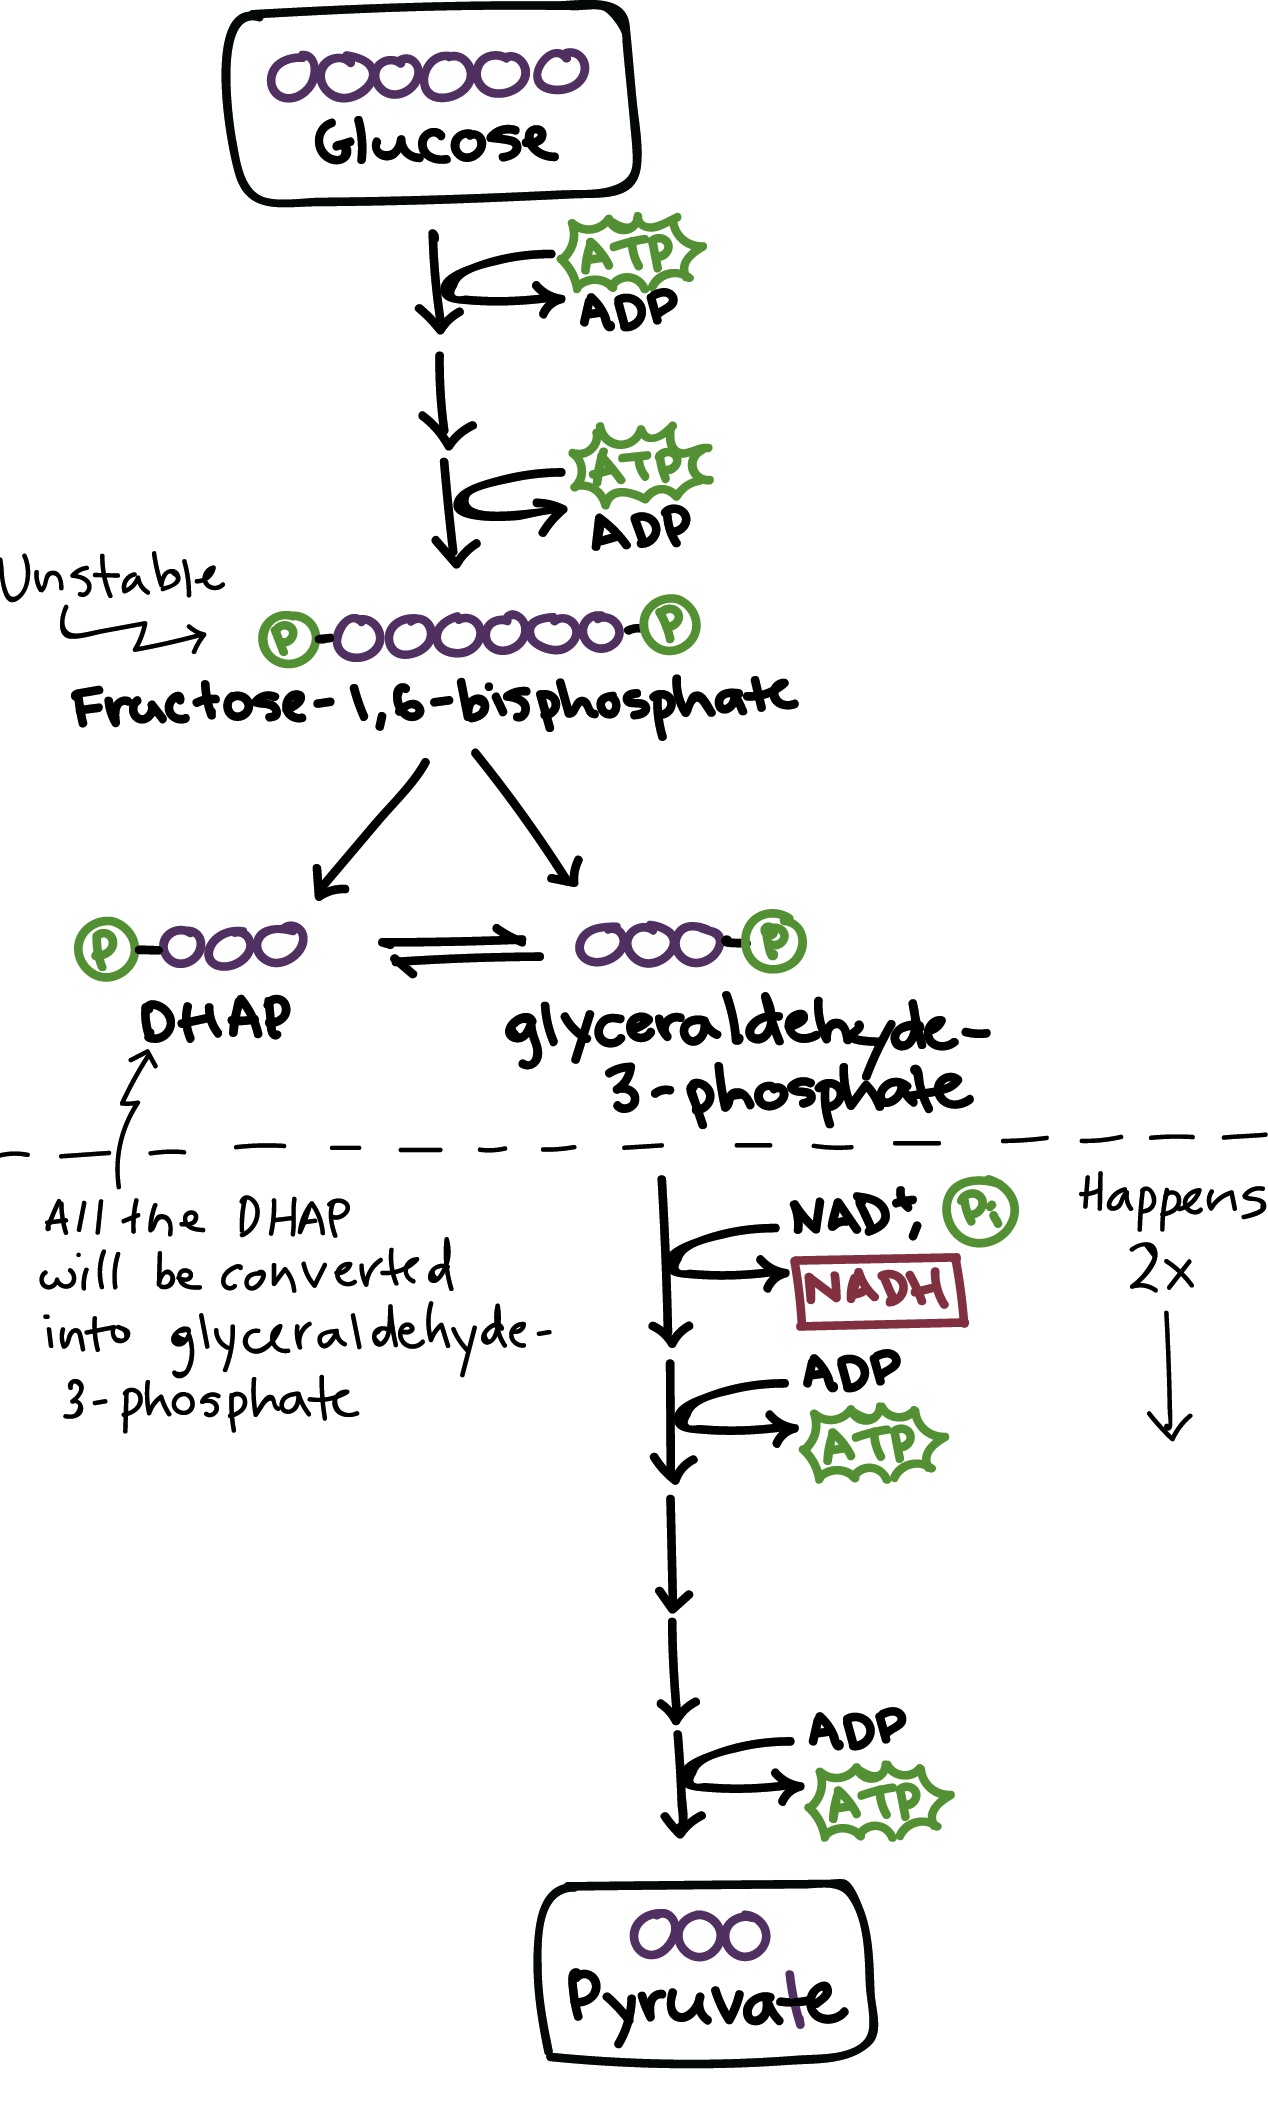 Glucose
ATP
ADP
ATP
ADP
Unstable
P P
Fructose-1,6-bisphosphate
P P
DHAP
glyceraldehyde-
3-phosphate
All the DHAP
will be converted
into glyceraldehyde-
3-phosphate
NAD+, Pi
NADH
Happens
2x
ADP
ATP
ADP
ATP
Pyruvate